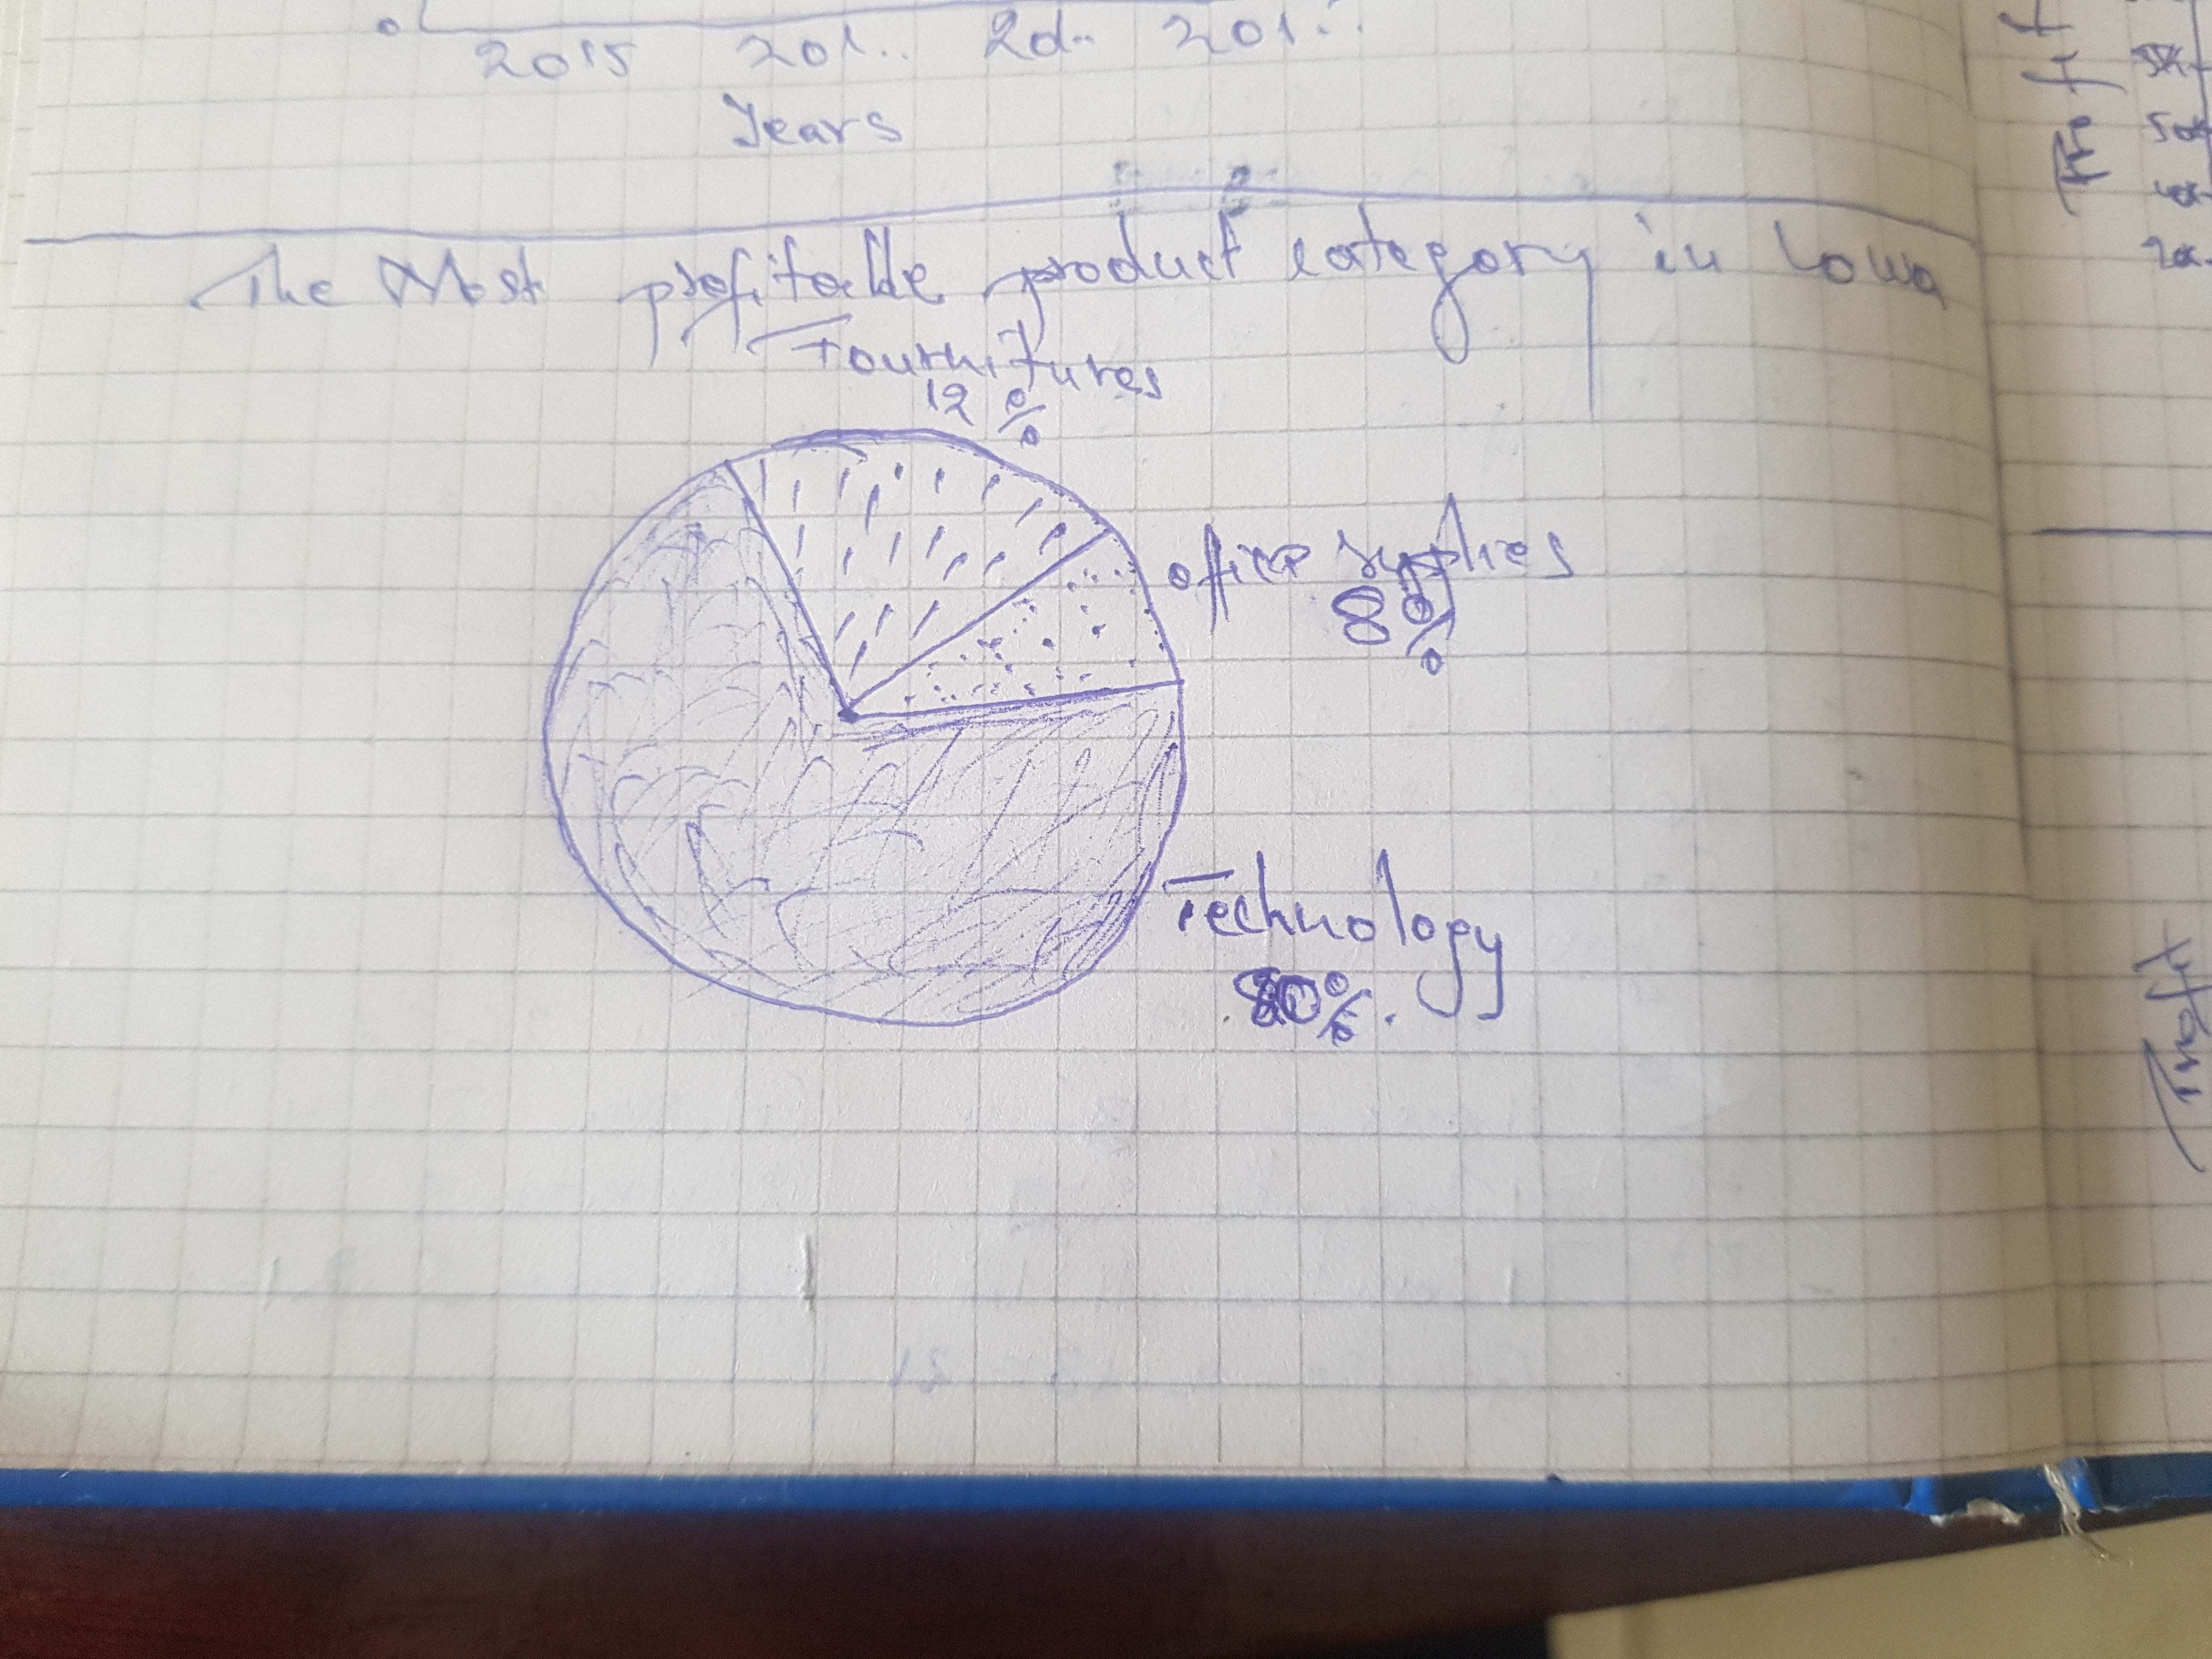 2015 201.. 201.. 201..
Years
The Most profitable product category in Lowa
Fournitures
12%
office supplies
8%
Technology
80%
Profit